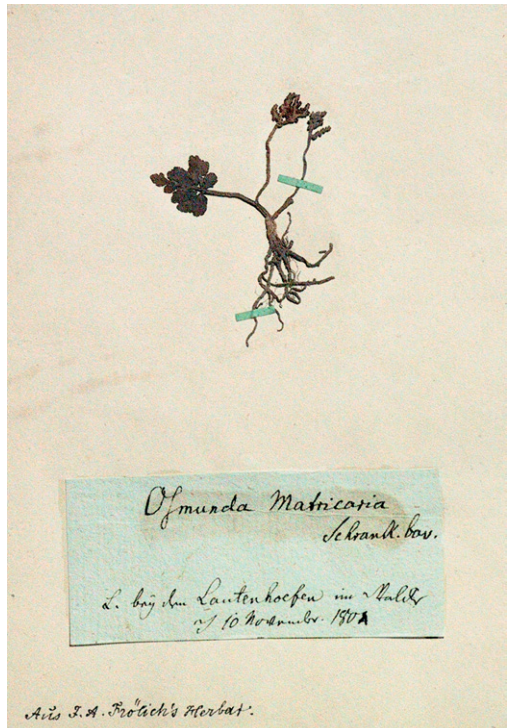 Osmunda Matricaria
Schrank. bav.
L. bey dem Lautenhoefen im Walde
10 November. 1801
Aus J. A. Frölich's Herbar.